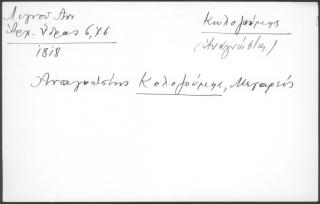 Λιγνοῦ Ἀν.
Ἀρχ. Ὕδρας 6,46
1818
Κολοζούμης
(Ἀναγνώστης)
Ἀναγνώστης Κολοζούμης, Μεγαρεύς